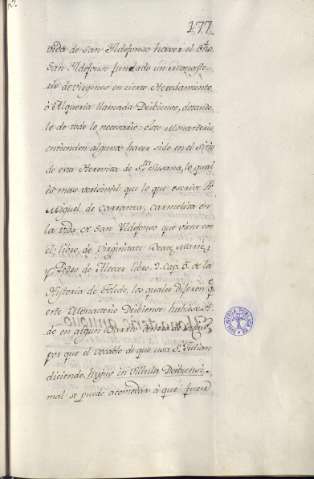 177
vida de San Ildefonso haver el Año
San Ildefonso fundado un
de Virgenes en cierto Heredamiento
ò Alqueria llamada Deibiense, dotando
le de todo lo necesario: este Monasterio
entienden algunos haver sido en el Sitio
de esta Hermita de Sta Susana, lo qual
es mas verisimil que lo que escrive Fr.
Miguel de Carranza, Carmelita en
la vida de San Yldefonso que viene con
el libro, de Virginitate Beatæ Mariæ,
y Pedro de Alcocer libro. cap. de la
Historia de Toledo, los quales dijeron q
este Monasterio Deibiense
de en
por que el vocablo de que usa Sn. Julian
diciendo, in Villula Deibiensi,
mal se puede acomodar à que fuese